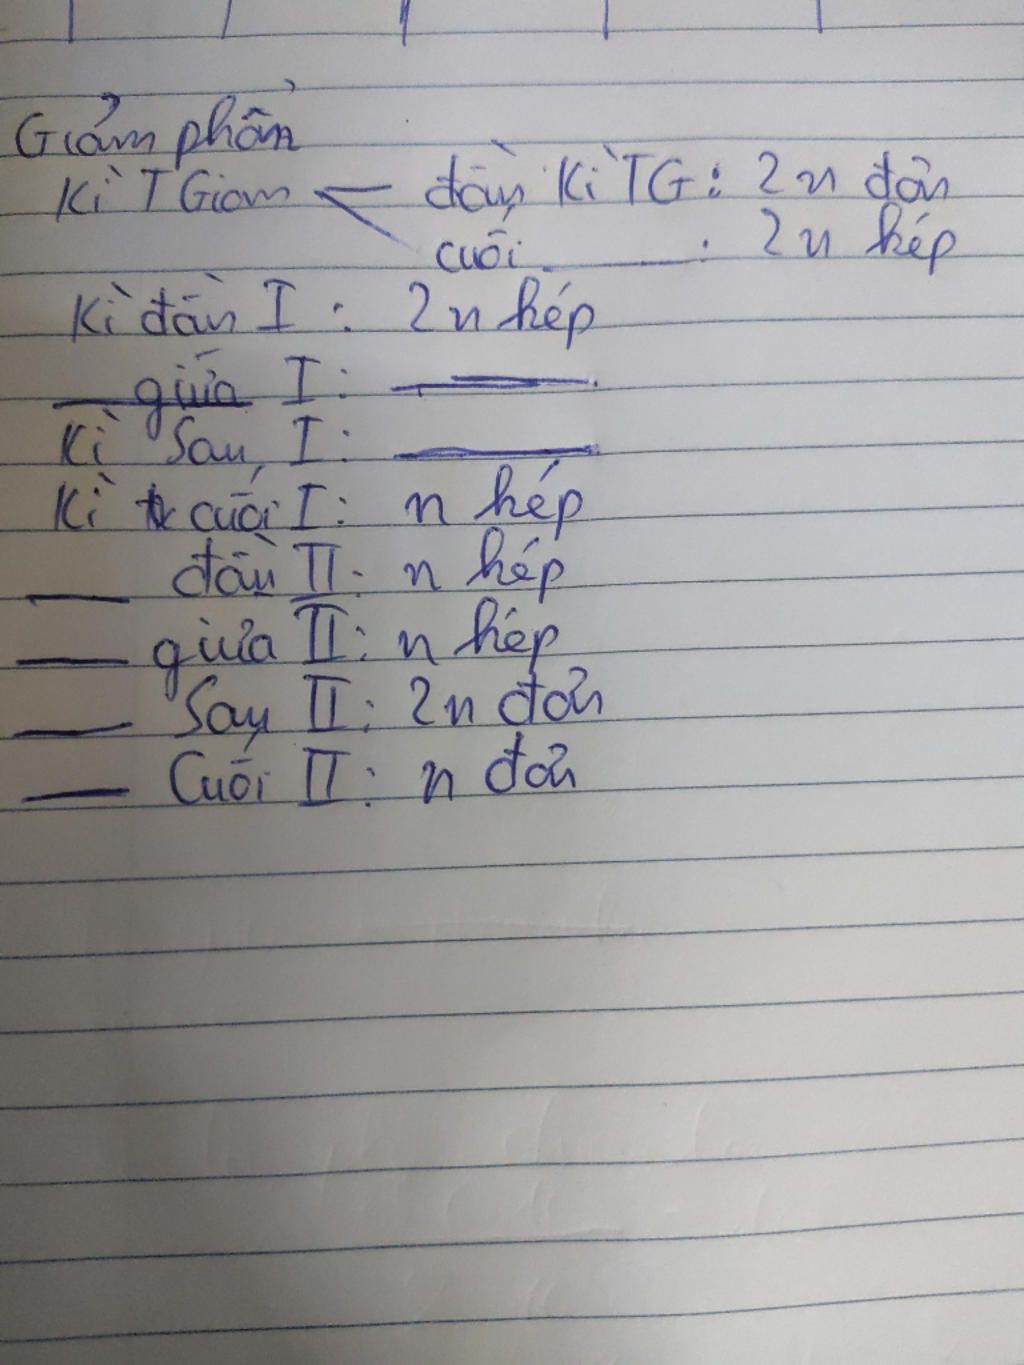 Giảm phân
Kì TGian — đầu Kì TG: 2n đơn
cuối ——: 2n kép
Kì đầu I: 2n kép
— giữa I: ——
Kì Sau I: ——
Kì cuối I: n kép
— đầu II: n kép
— giữa II: n kép
— Sau II: 2n đơn
— Cuối II: n đơn